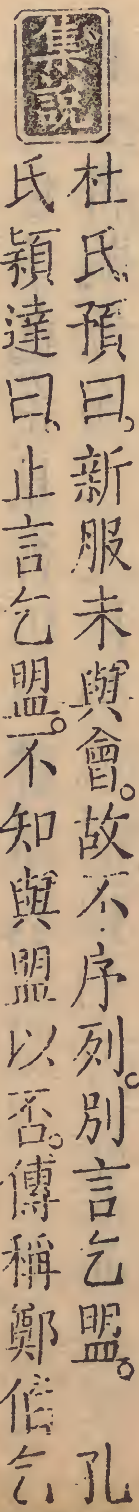 集說
杜氏預曰。新服未與會。故不序列。別言乞盟。　孔
氏穎達曰。止言乞盟。不知與盟以否。傳稱鄭伯乞